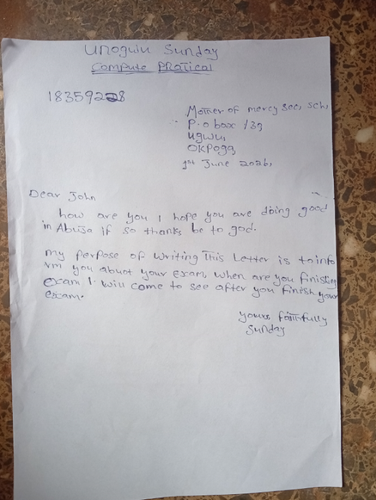 Unoguiu Sunday
Compute Pratical
18359228
Mother of mercy sec, sch,
P.o box 139
ugwu,
OKPOga,
1st June 2026,
Dear John
how are you I hope you are doing good
in Abuja if so thanks be to god.
my Perpose of writing This Letter is to info
rm you about your Exam, when are you finishing
exam I will come to see after you finish your
exam.
yours faithfully
Sunday